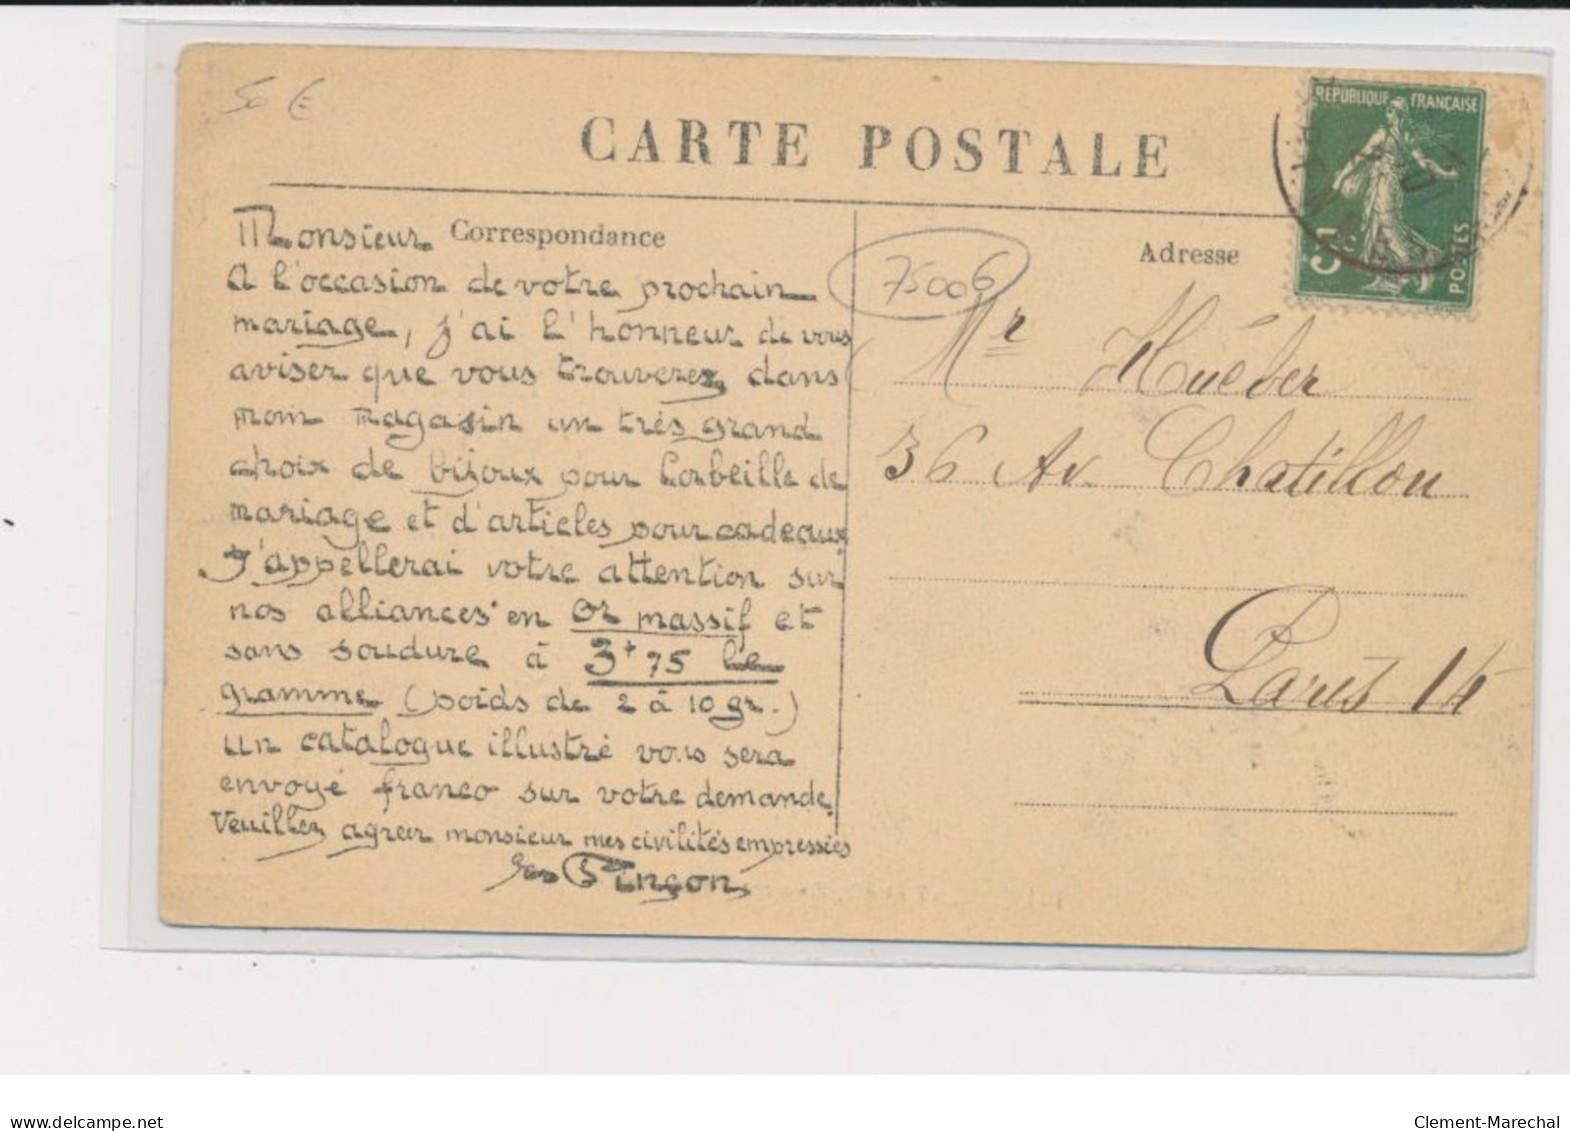 50 €
CARTE POSTALE
RÉPUBLIQUE FRANÇAISE
5c
POSTES
Correspondance
Adresse
75006
Monsieur
A l'occasion de votre prochain
mariage, j'ai l'honneur de vous
aviser que vous trouverez dans
mon magasin un très grand
choix de bijoux pour Corbeille de
mariage et d'articles pour cadeaux
J'appellerai votre attention sur
nos alliances en Or massif et
sans soudure à 3f75 le
gramme (poids de 2 à 10 gr.)
un catalogue illustré vous sera
envoyé franco sur votre demande
Veuillez agréer monsieur mes civilités empressées
Pinçon
Mr Huéber
36 Av. Chatillon
Paris 14
www.delcampe.net
Clement-Marechal